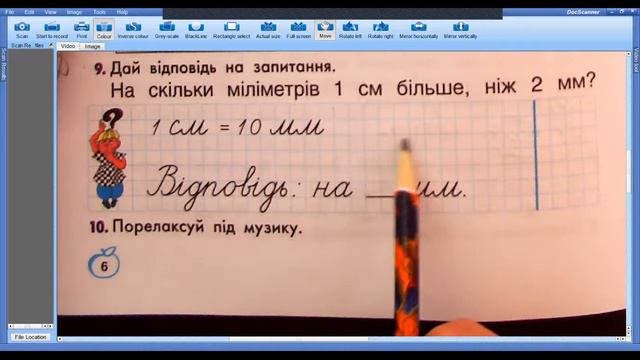 DocScanner
File Edit View Image Tools Help
Scan Start to record Print Colour Inverse colour Grey-scale BlackLine Rectangle select Actual size Full screen Move Rotate left Rotate right Mirror horizontally Mirror vertically
Scan Re.. files Video Image
Scan Results
Video tool
9. Дай відповідь на запитання.
На скільки міліметрів 1 см більше, ніж 2 мм?
1 см = 10 мм
Відповідь: на ___ мм.
10. Порелаксуй під музику.
6
File Location